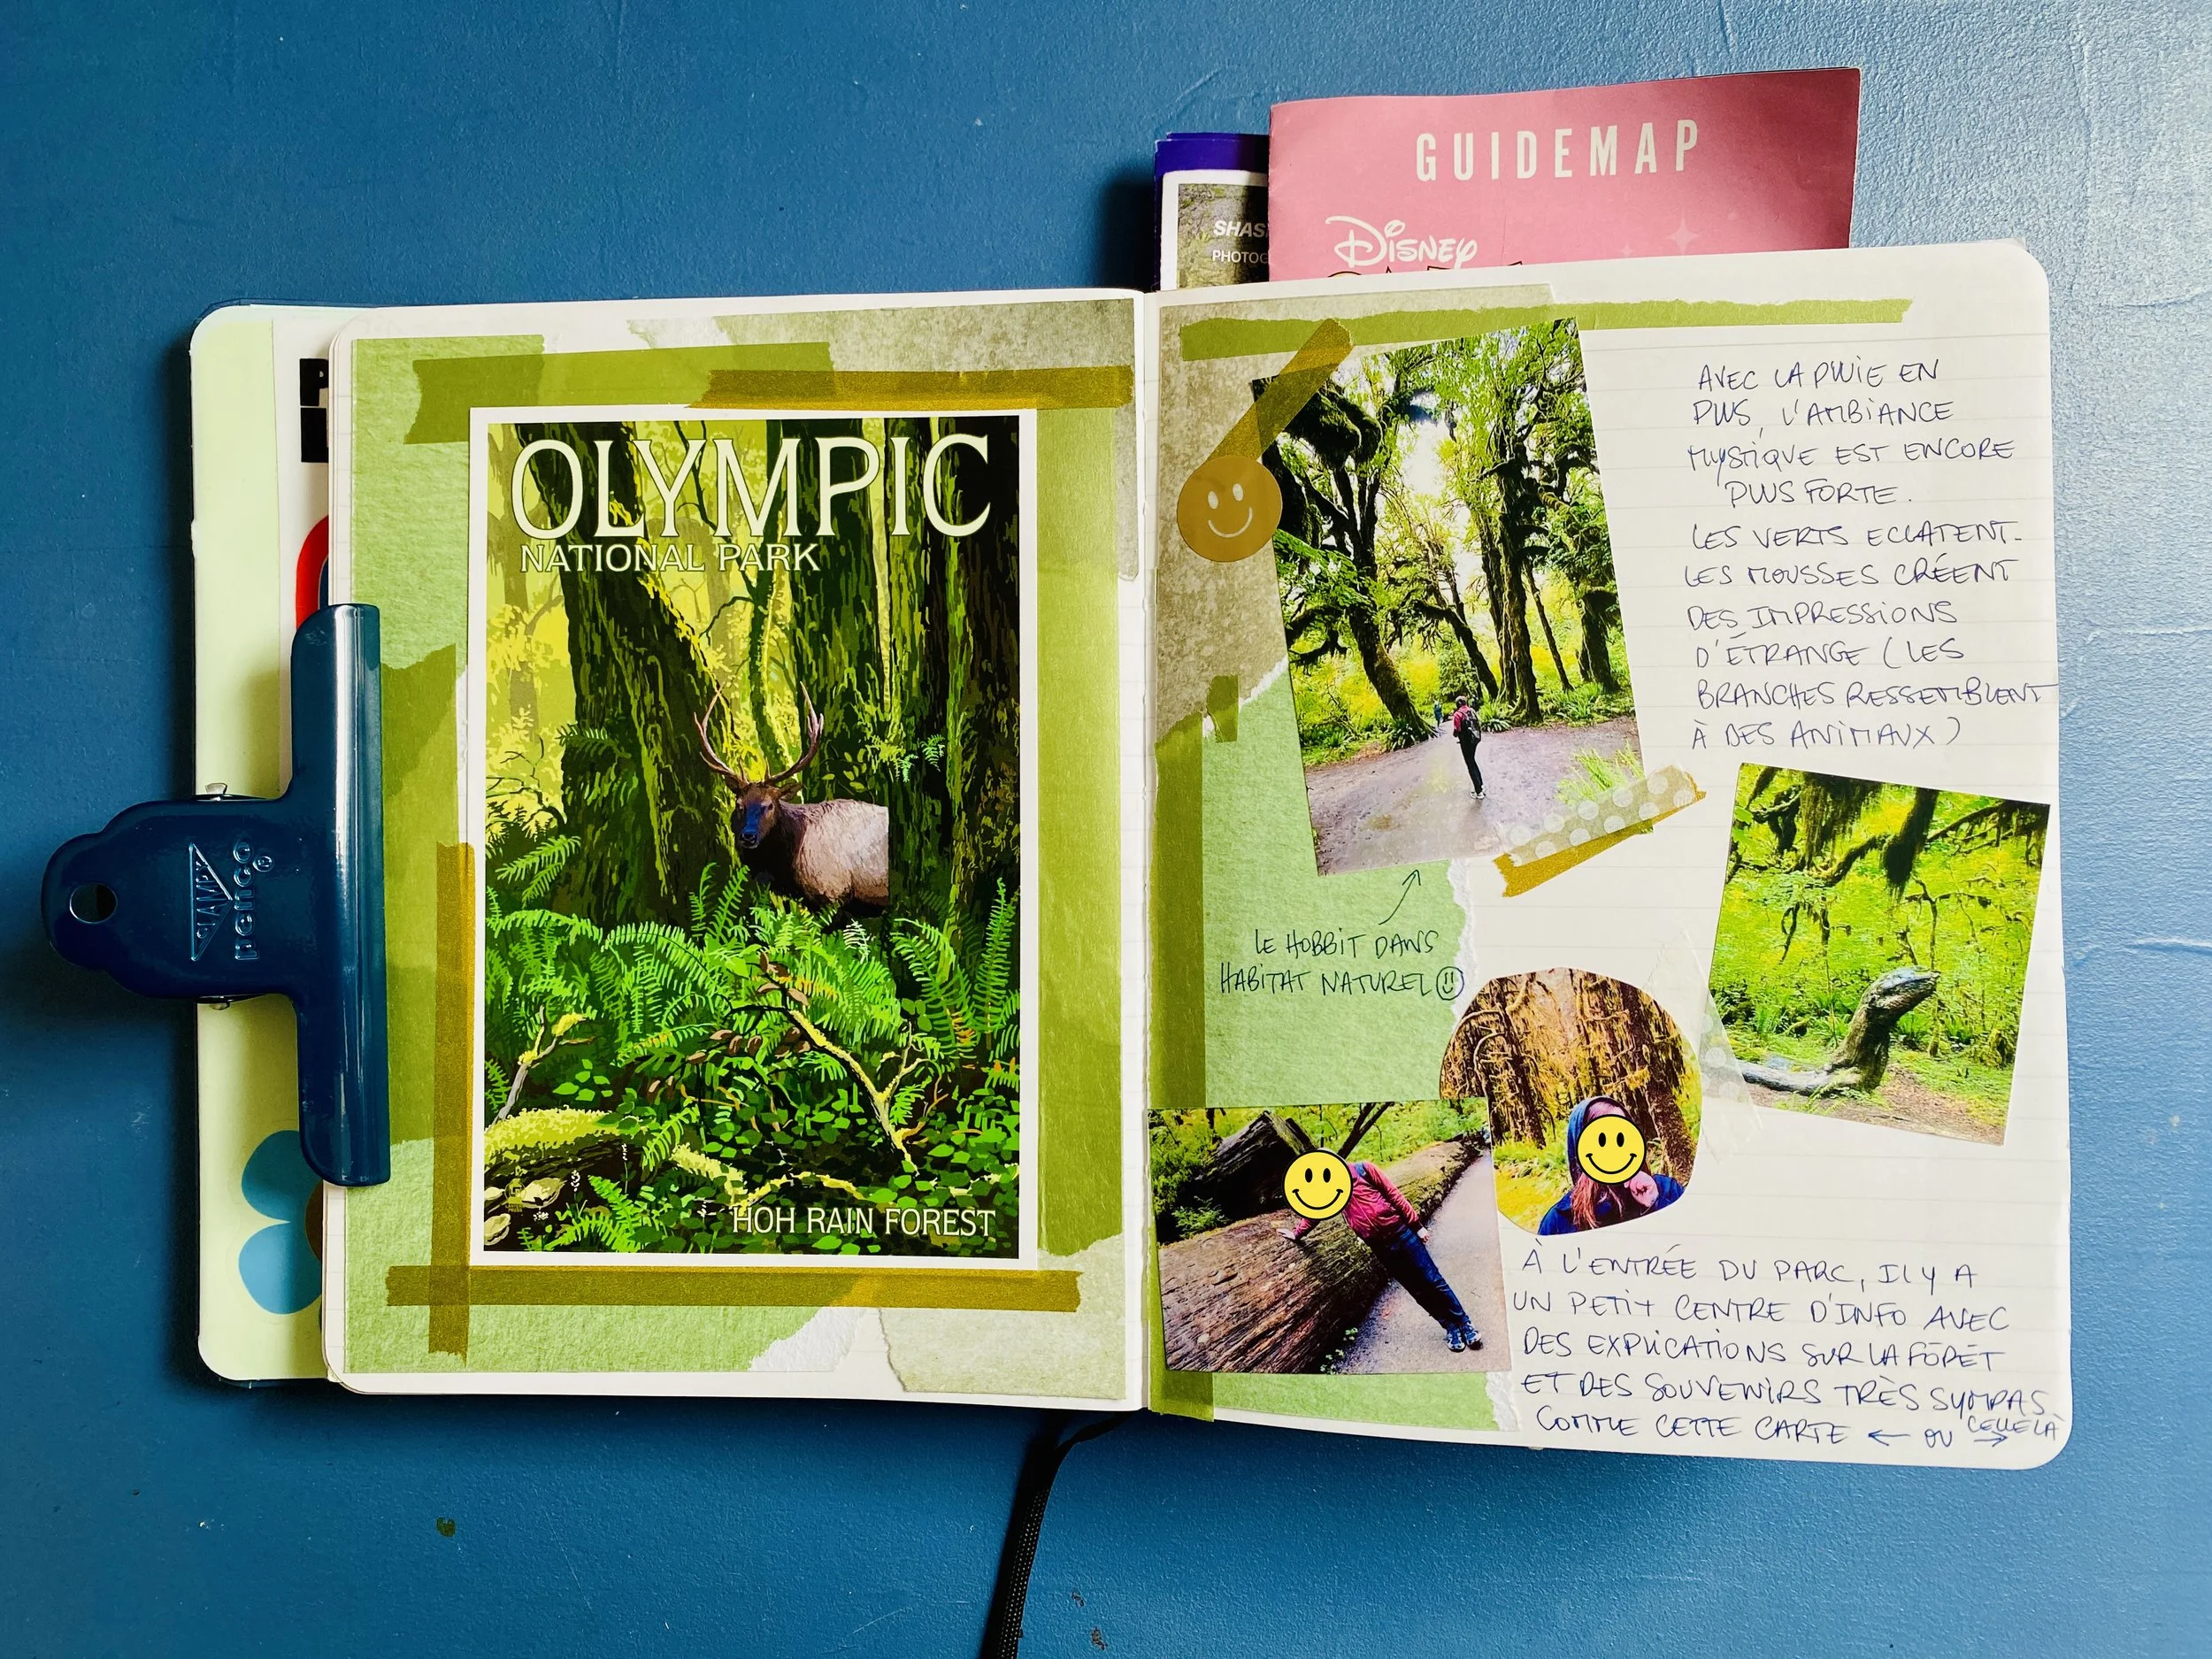 GUIDEMAP
Disney
SHAS
PHOTOG
P
OLYMPIC
NATIONAL PARK
HOH RAIN FOREST
STAMPX
penco
AVEC LA PLUIE EN
PLUS, L'AMBIANCE
MYSTIQUE EST ENCORE
PLUS FORTE.
LES VERTS ECLATENT.
LES MOUSSES CRÉENT
DES IMPRESSIONS
D'ÉTRANGE (LES
BRANCHES RESSEMBLENT
À DES ANIMAUX)
LE HOBBIT DANS
HABITAT NATUREL
À L'ENTRÉE DU PARC, IL Y A
UN PETIT CENTRE D'INFO AVEC
DES EXPLICATIONS SUR LA FÔRET
ET DES SOUVENIRS TRÈS SYMPAS
COMME CETTE CARTE ← OU CELLE LÀ →